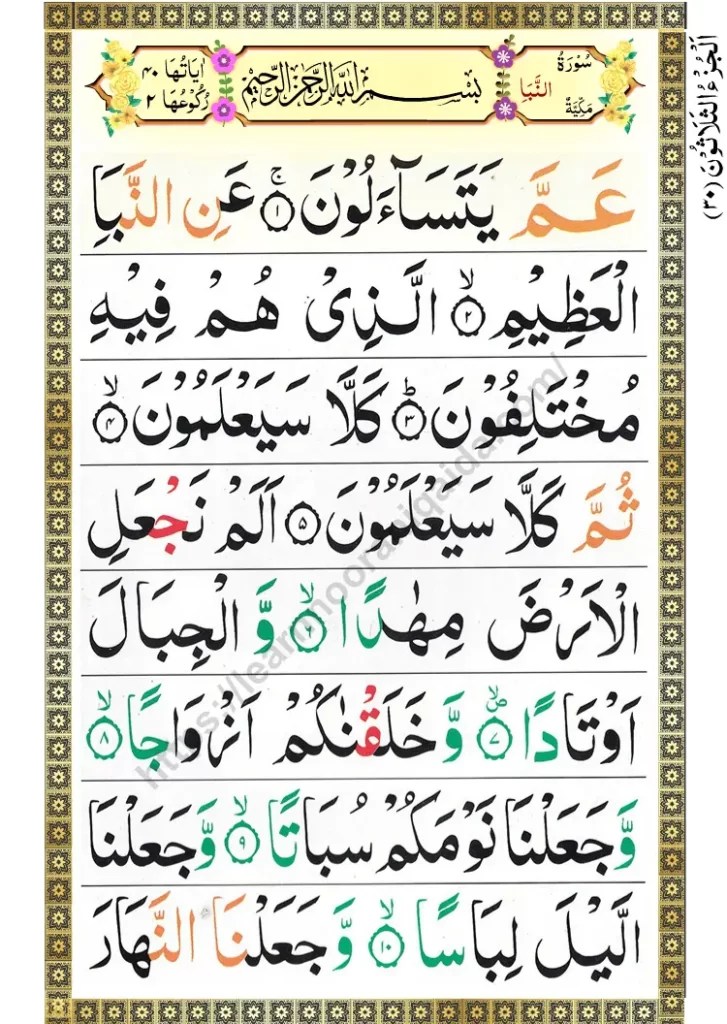 اَلْجُزْءُ الثَّلَاثُوْنَ (٣٠)
سُوْرَةُ النَّبَا مَكِّيَّةٌ
بِسْمِ اللّٰهِ الرَّحْمٰنِ الرَّحِيْمِ
اٰيَاتُهَا ٤٠ رُكُوْعُهَا ٢
عَمَّ يَتَسَآءَلُوْنَ ۚ ﴿١﴾ عَنِ النَّبَاِ
الْعَظِيْمِ ۙ ﴿٢﴾ الَّذِيْ هُمْ فِيْهِ
مُخْتَلِفُوْنَ ؕ ﴿٣﴾ كَلَّا سَيَعْلَمُوْنَ ۙ ﴿٤﴾
ثُمَّ كَلَّا سَيَعْلَمُوْنَ ﴿٥﴾ اَلَمْ نَجْعَلِ
الْاَرْضَ مِهٰدًا ۙ ﴿٦﴾ وَّ الْجِبَالَ
اَوْتَادًا ۪ۙ ﴿٧﴾ وَّ خَلَقْنٰكُمْ اَزْوَاجًا ۙ ﴿٨﴾
وَّ جَعَلْنَا نَوْمَكُمْ سُبَاتًا ۙ ﴿٩﴾ وَّ جَعَلْنَا
الَّيْلَ لِبَاسًا ۙ ﴿١٠﴾ وَّ جَعَلْنَا النَّهَارَ
https://learnnooraniqaida.com/